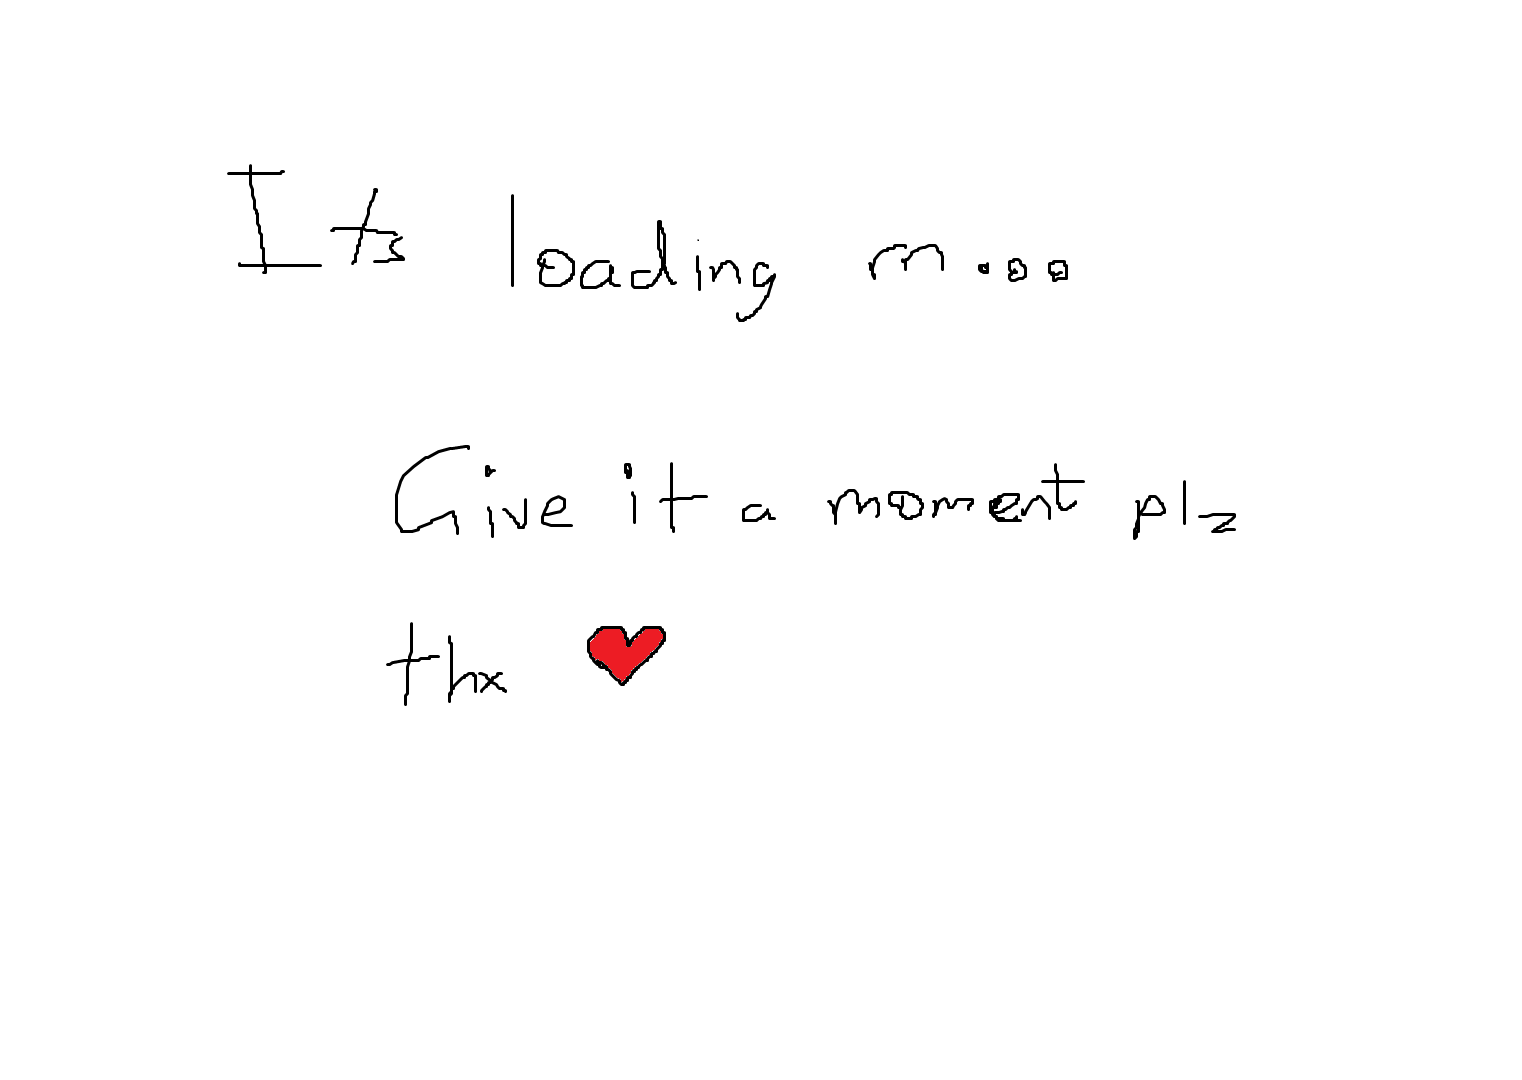 Its loading m...
Give it a moment plz
thx ❤